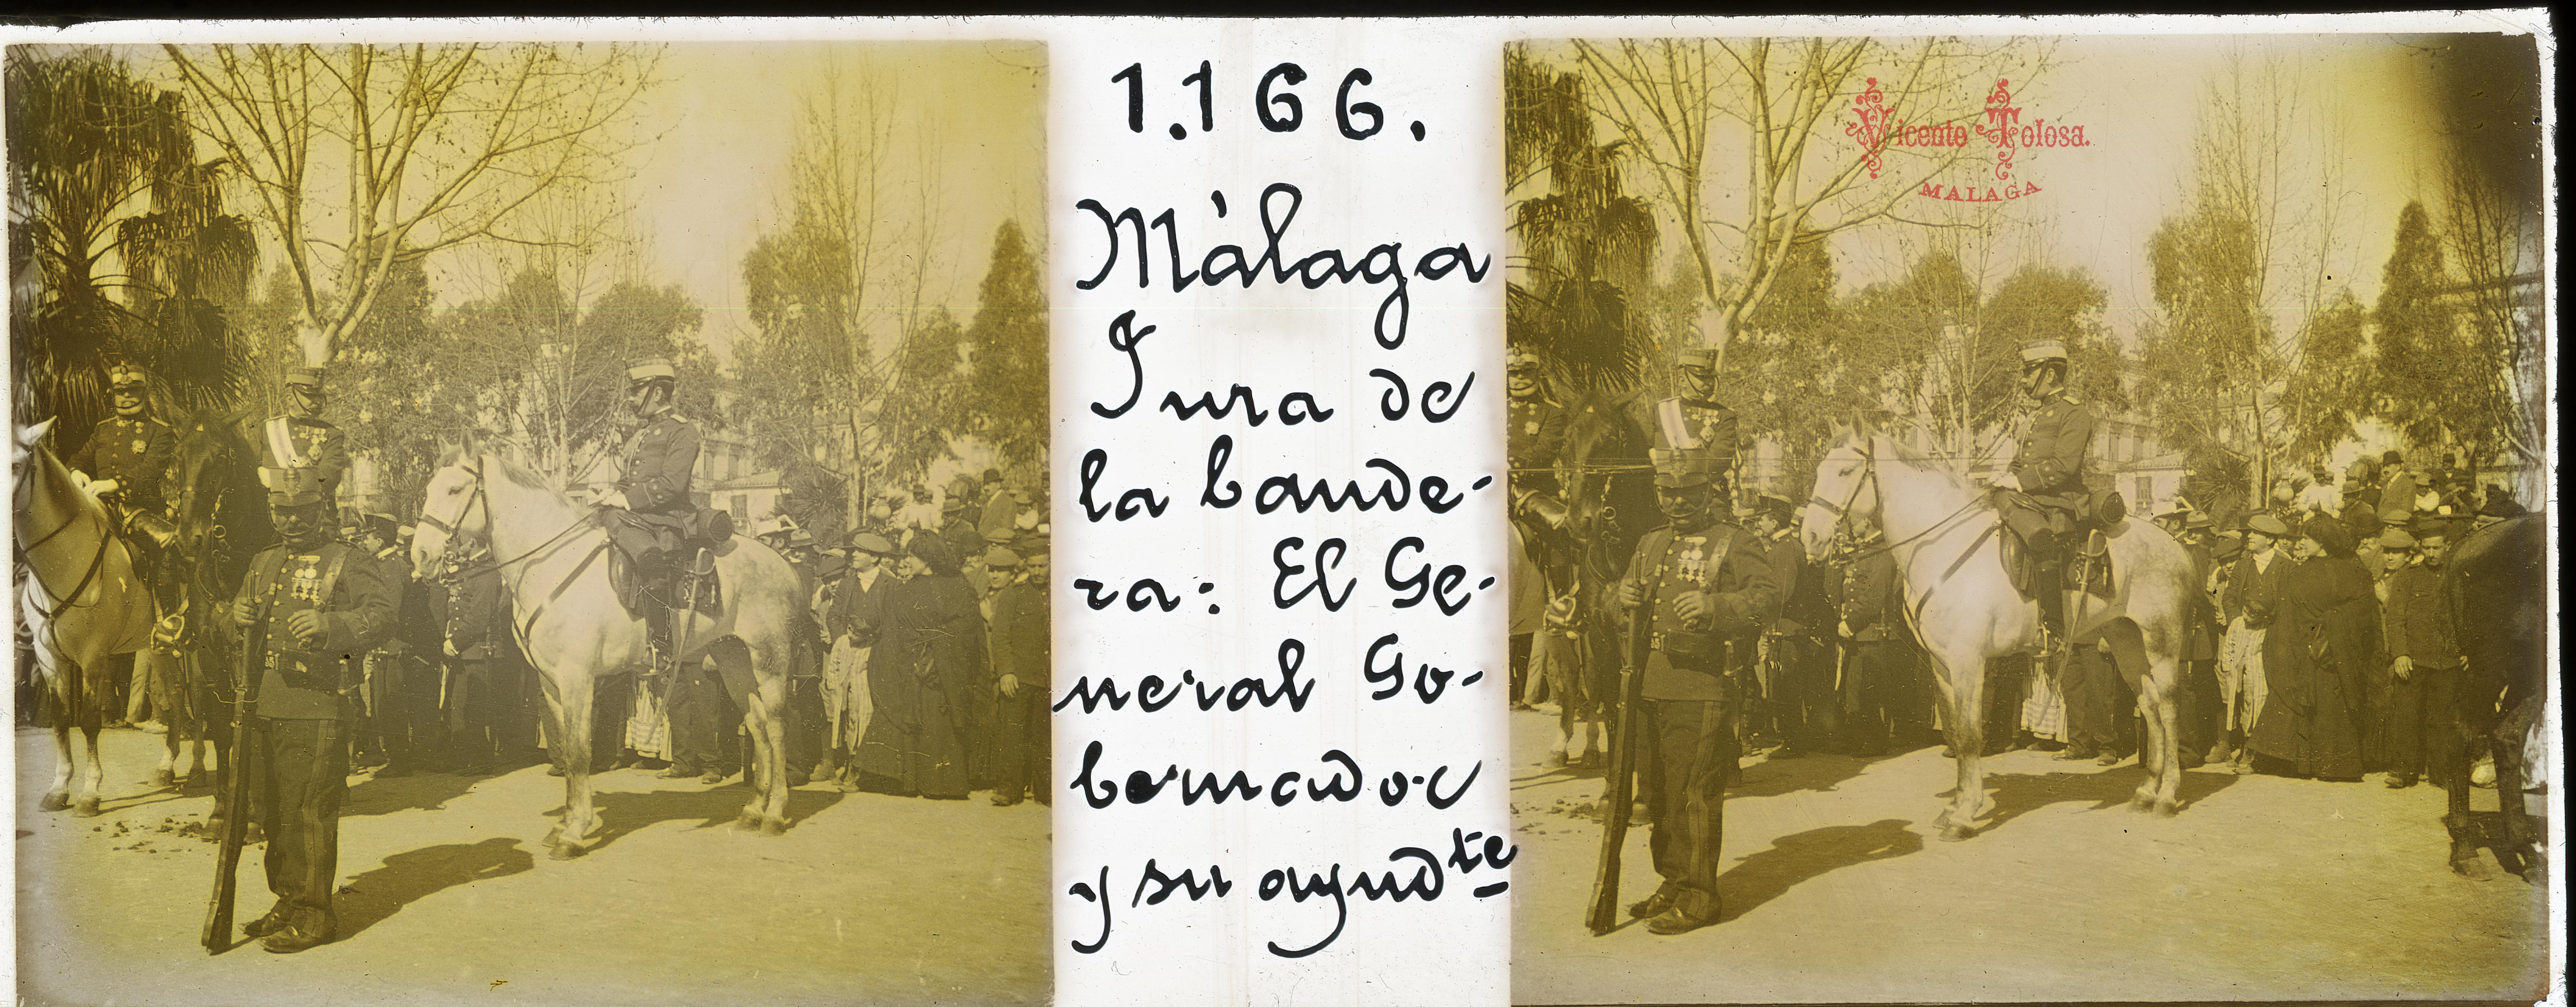 1.166.
Málaga
Jura de
la bande-
ra: El Ge-
neral Go-
bernador
y su ayudte
Vicente Tolosa.
MALAGA